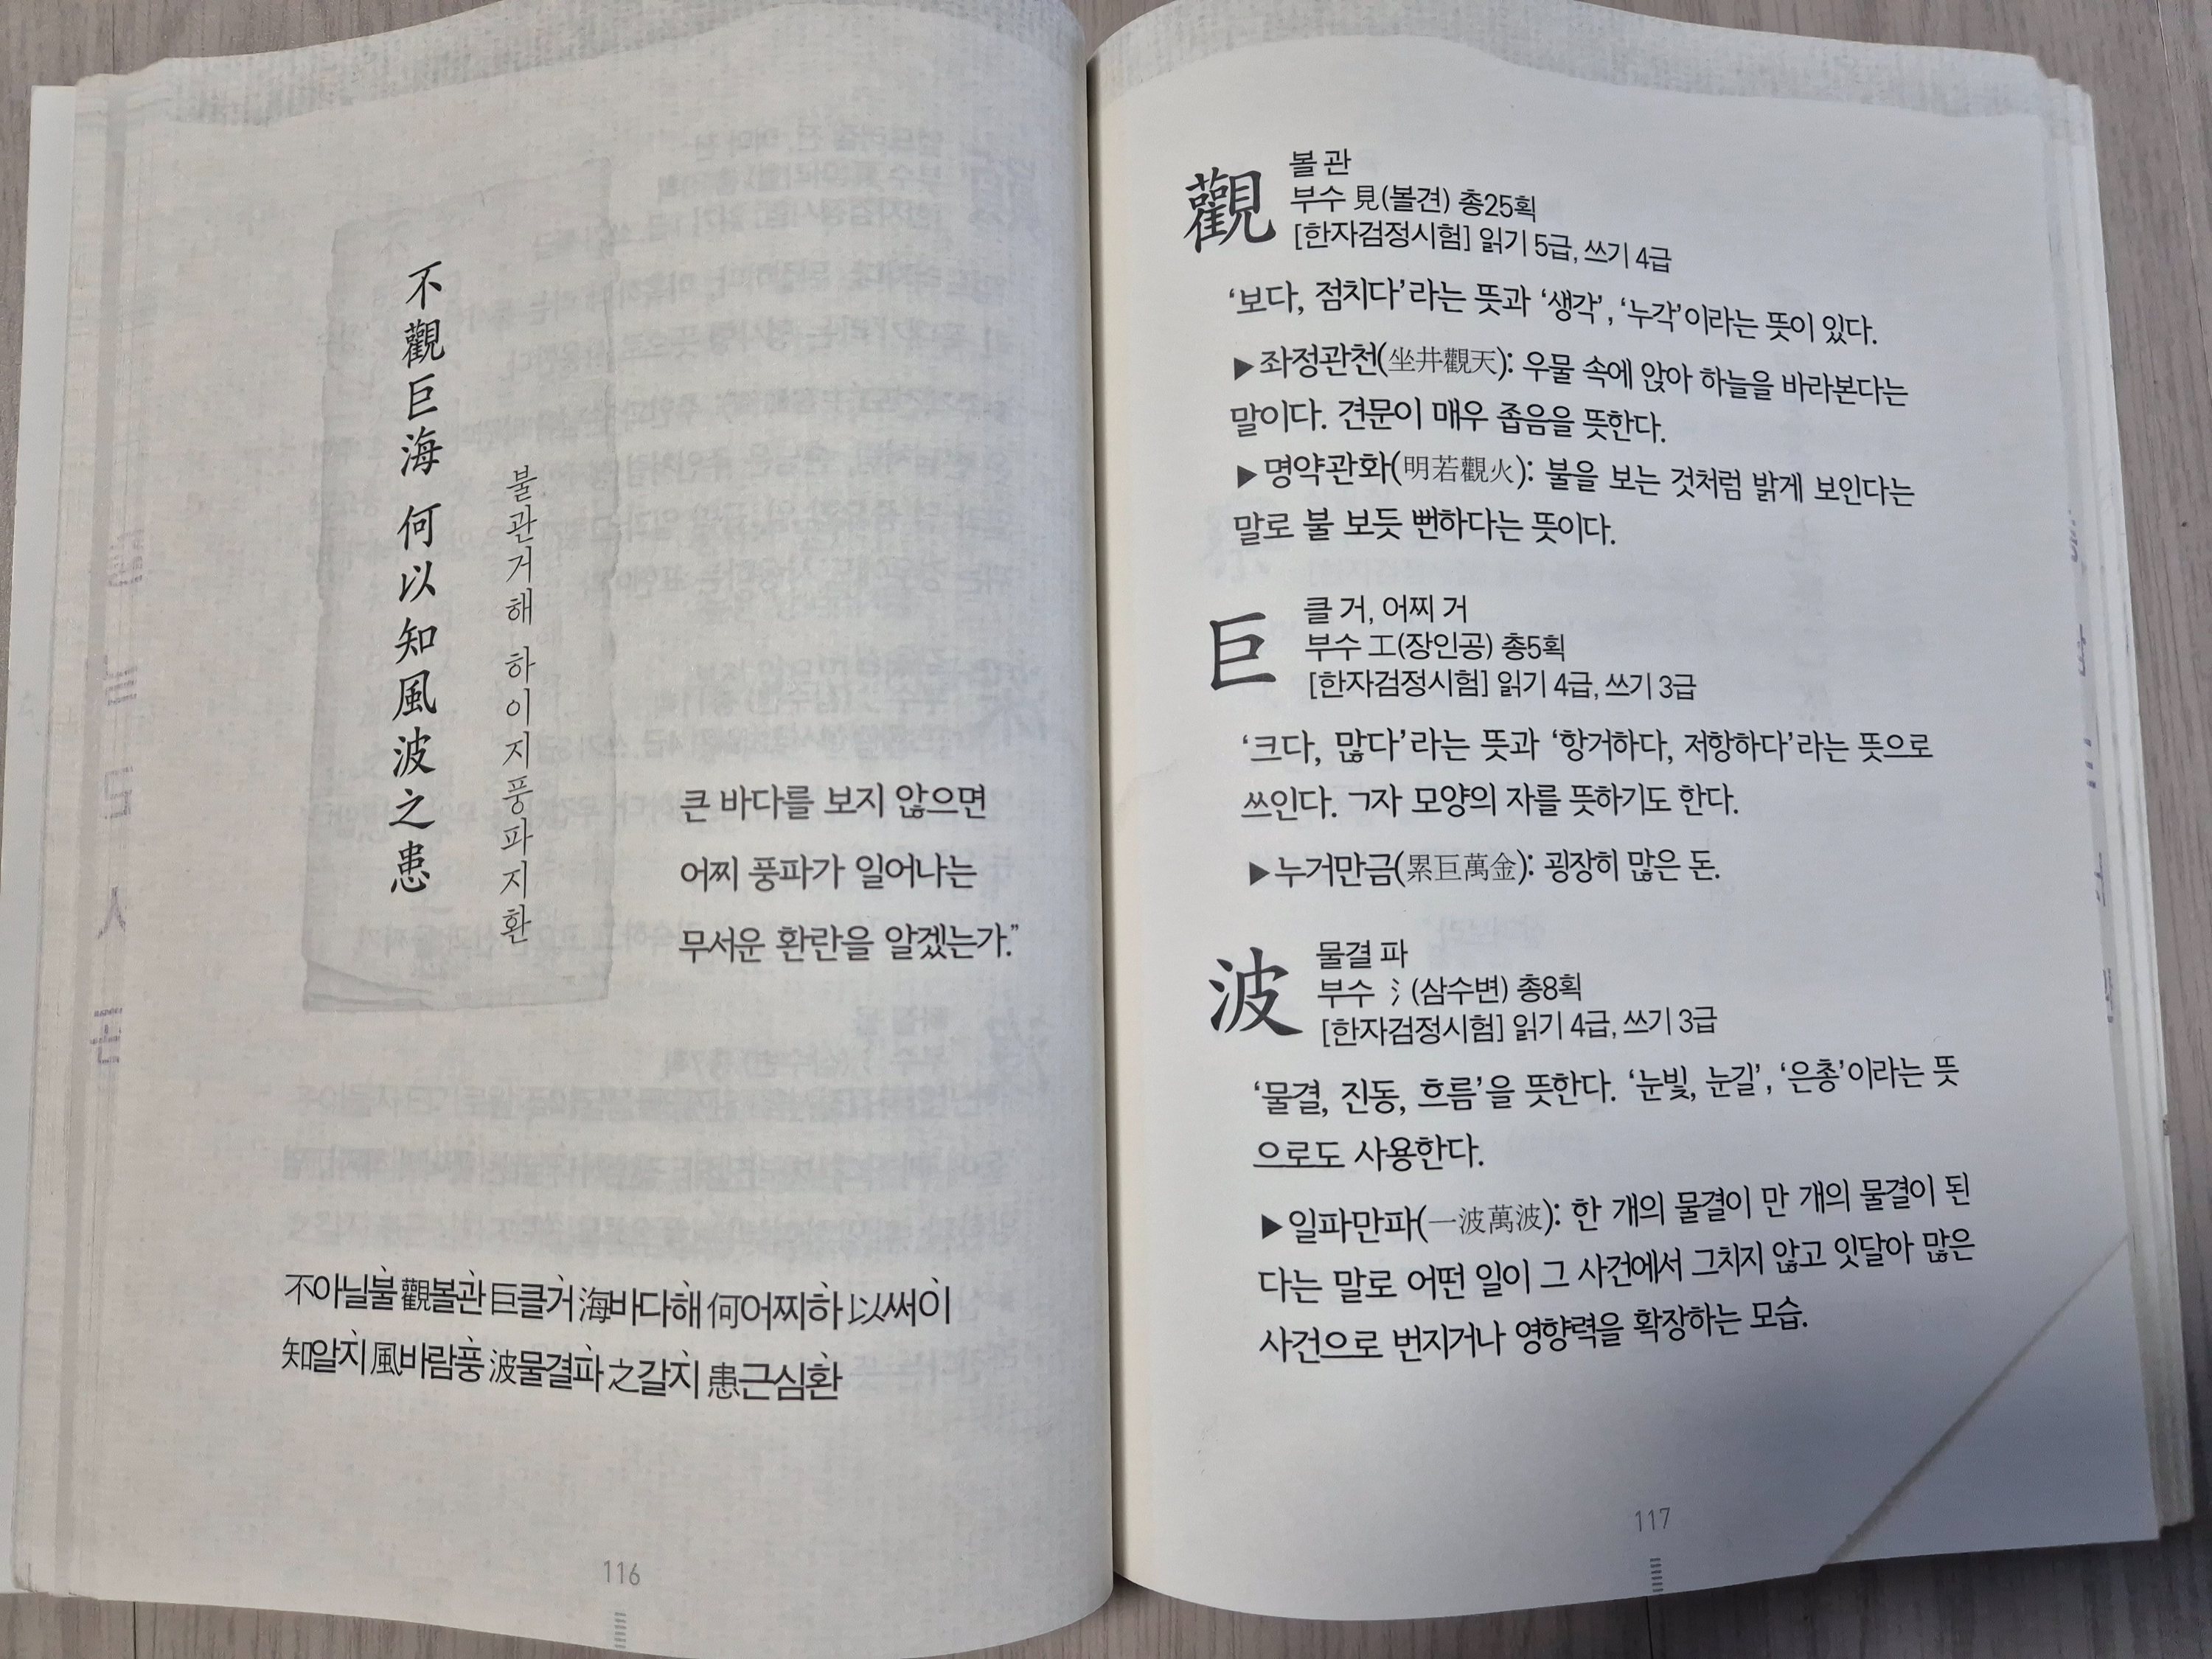 不觀巨海 何以知風波之患
불관거해 하이지풍파지환
큰 바다를 보지 않으면
어찌 풍파가 일어나는
무서운 환란을 알겠는가.”
不아닐불 觀볼관 巨클거 海바다해 何어찌하 以써이
知알지 風바람풍 波물결파 之갈지 患근심환
116
觀
볼 관
부수 見(볼견) 총25획
[한자검정시험] 읽기 5급, 쓰기 4급
‘보다, 점치다’라는 뜻과 ‘생각’, ‘누각’이라는 뜻이 있다.
▶좌정관천(坐井觀天): 우물 속에 앉아 하늘을 바라본다는
말이다. 견문이 매우 좁음을 뜻한다.
▶명약관화(明若觀火): 불을 보는 것처럼 밝게 보인다는
말로 불 보듯 뻔하다는 뜻이다.
巨
클 거, 어찌 거
부수 工(장인공) 총5획
[한자검정시험] 읽기 4급, 쓰기 3급
‘크다, 많다’라는 뜻과 ‘항거하다, 저항하다’라는 뜻으로
쓰인다. ㄱ자 모양의 자를 뜻하기도 한다.
▶누거만금(累巨萬金): 굉장히 많은 돈.
波
물결 파
부수 氵(삼수변) 총8획
[한자검정시험] 읽기 4급, 쓰기 3급
‘물결, 진동, 흐름’을 뜻한다. ‘눈빛, 눈길’, ‘은총’이라는 뜻
으로도 사용한다.
▶일파만파(一波萬波): 한 개의 물결이 만 개의 물결이 된
다는 말로 어떤 일이 그 사건에서 그치지 않고 잇달아 많은
사건으로 번지거나 영향력을 확장하는 모습.
117